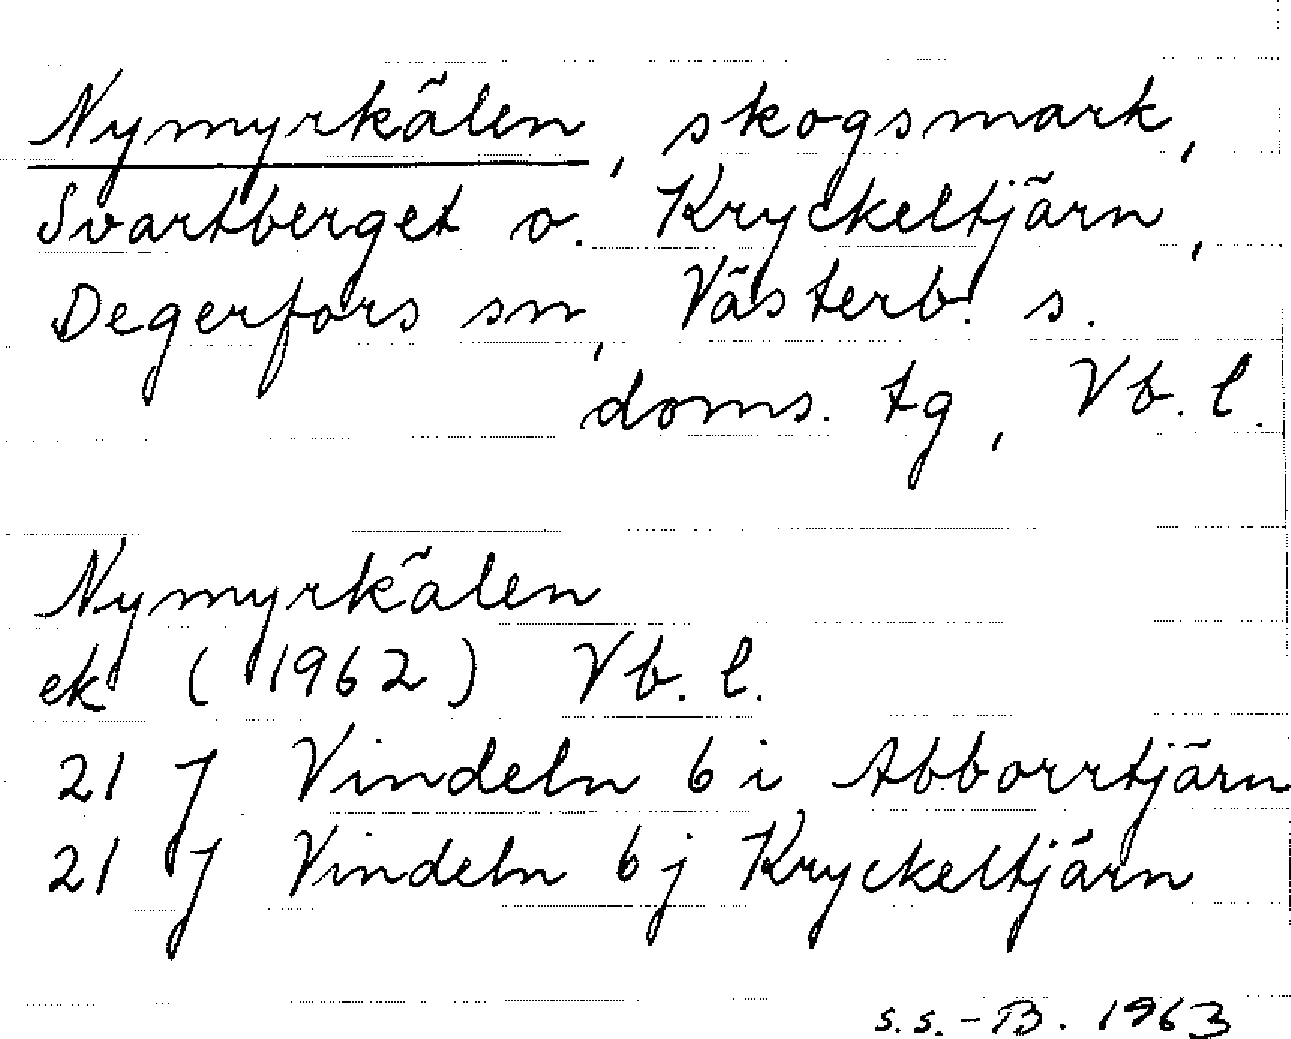 Nymyrkälen, skogsmark,
Svartberget o. Kryckeltjärn,
Degerfors sn, Västerb. s.
doms. tg, Vb. l.
Nymyrkälen
ek (1962) Vb. l.
21 J Vindeln 6 i Abborrtjärn
21 J Vindeln 6 j Kryckeltjärn
s.s.-B. 1963